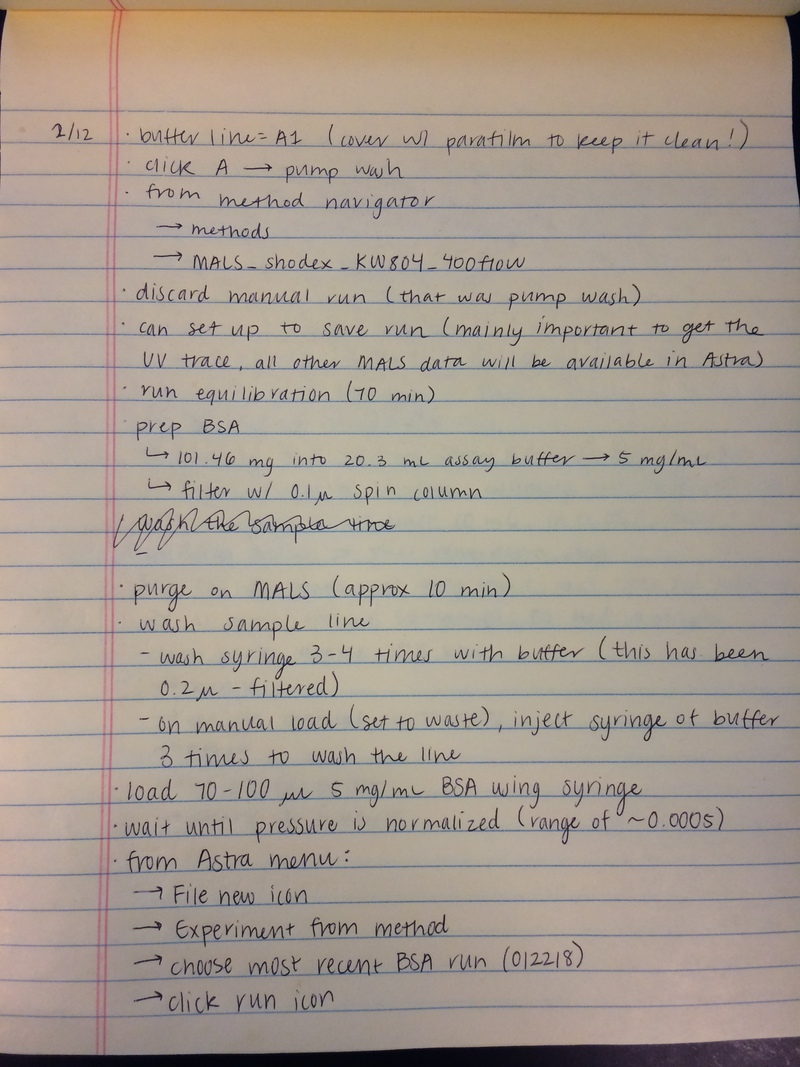 2/12 · buffer line = A1 (cover w/ parafilm to keep it clean!)
· click A → pump wash
· from method navigator
→ methods
→ MALS_shodex_KW804_400flow
· discard manual run (that was pump wash)
· can set up to save run (mainly important to get the
UV trace, all other MALS data will be available in Astra)
· run equilibration (70 min)
prep BSA
↳ 101.46 mg into 20.3 mL assay buffer → 5 mg/mL
↳ filter w/ 0.1μ spin column
wash the sample line
· purge on MALS (approx 10 min)
· wash sample line
- wash syringe 3-4 times with buffer (this has been
0.2μ - filtered)
- on manual load (set to waste), inject syringe of buffer
3 times to wash the line
· load 70-100 μL 5 mg/mL BSA using syringe
· wait until pressure is normalized (range of ~0.0005)
· from Astra menu:
→ File new icon
→ Experiment from method
→ choose most recent BSA run (012218)
→ click run icon